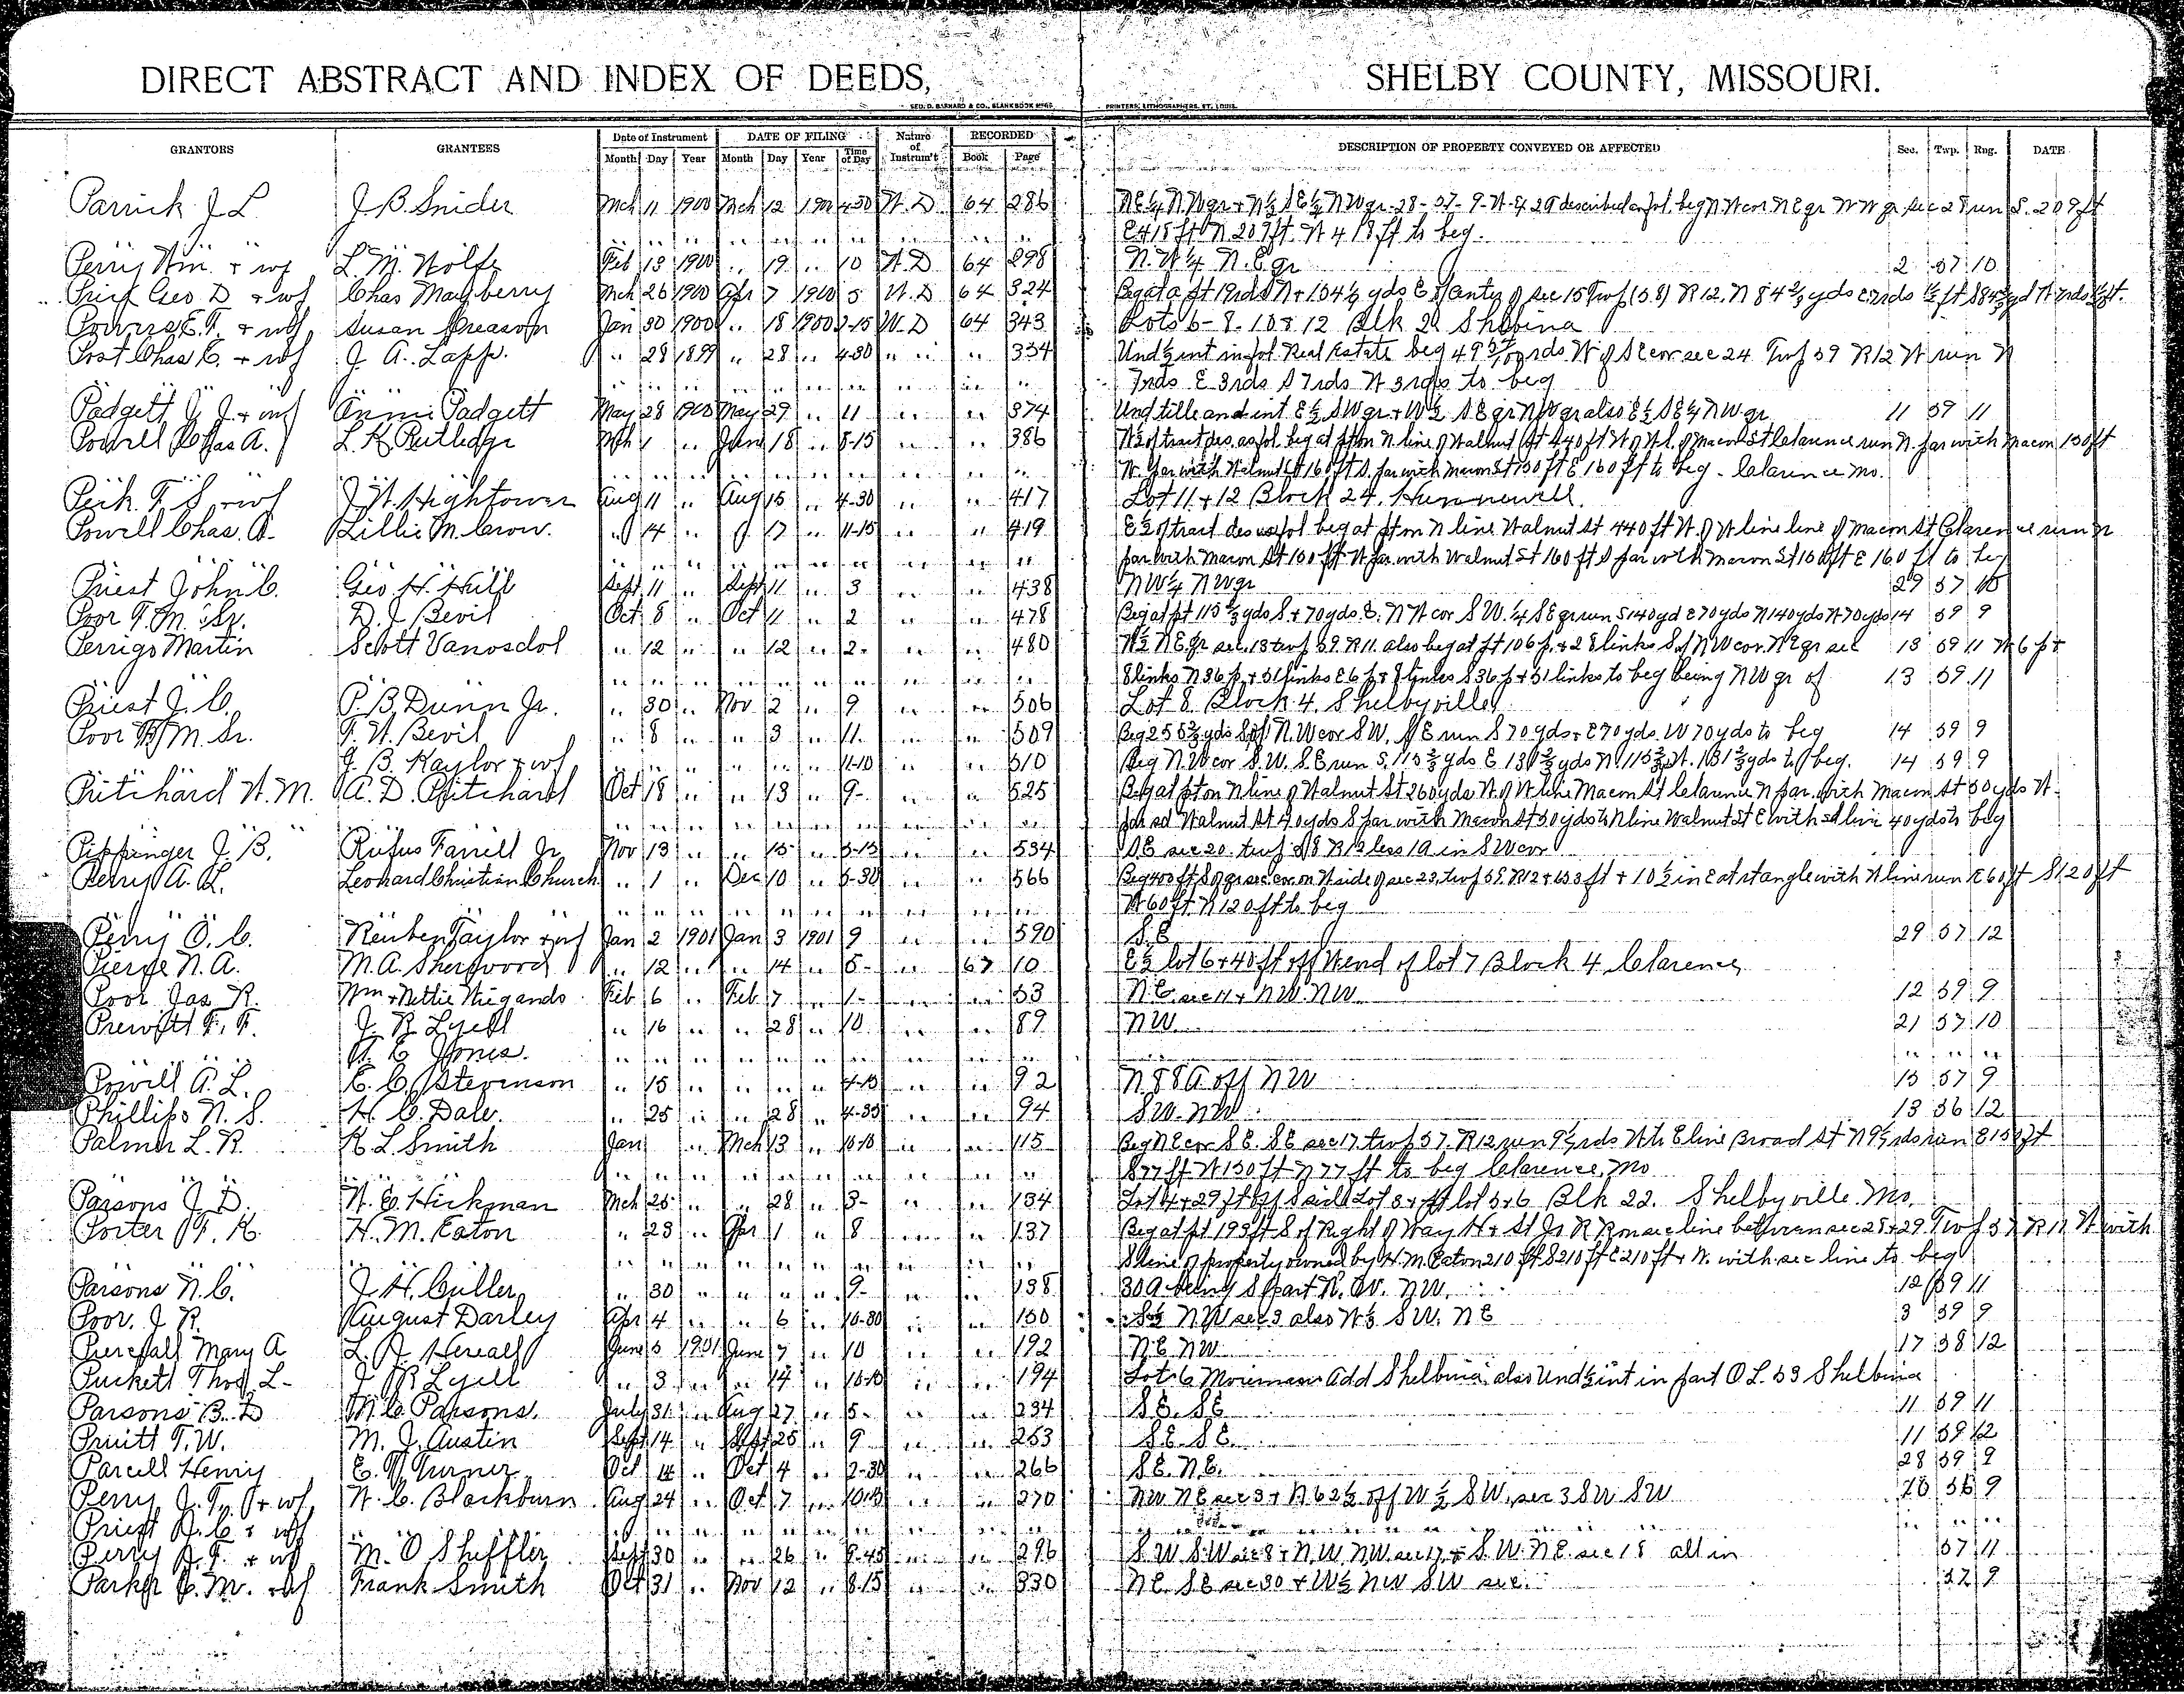 DIRECT ABSTRACT AND INDEX OF DEEDS, SHELBY COUNTY, MISSOURI.
GEO. D. BARNARD & CO., BLANK BOOK M'F'G PRINTERS, LITHOGRAPHERS, ST. LOUIS.
GRANTORS GRANTEES Date of Instrument DATE OF FILING Nature of Instrum't RECORDED DESCRIPTION OF PROPERTY CONVEYED OR AFFECTED Sec. Twp. Rng. DATE
Month Day Year Month Day Year Time of Day Book Page
Parrick J L J. B. Snider Mch 11 1900 Mch 12 4-30 W. D 64 286 28-57-9 run S. 209 ft
E 418 ft N 209 ft. W 418 ft to beg.
Perry Wm. + wf L. M. Wolfe Feb 13 1900 .. 19 .. 10 W. D 64 298 N. W 1/4 N. E qr 2 57 10
Geo. D + wf Chas Mayberry Mch 26 1900 Apr 7 1900 5 W. D 64 324
Powers E. T. + wf Susan Greason Jan 30 1900 .. 18 1900 2-15 W. D 64 343 Lots 6-8-10 & 12 Blk Shelbina
Post Chas E. + wf J. A. Lapp. .. 28 1899 .. 28 .. 4-30 .. .. .. 354 Und 1/2 int in fol Real Estate beg rds W of SE cor sec 24 Twp 59 R12 W run N
7rds E 3rds S 7rds W 3rds to beg
Padgett J. J. + wf Annie Padgett May 28 1900 May 29 .. 11 .. .. 374 Und title and int E 1/2 SW qr + W 1/2 SE qr NW qr also E 1/2 SE 1/4 NW qr 11 59 11
Powell Chas A. L. K. Rutledge Mch 1 .. June 18 .. 8-15 .. .. 386 W 1/2 of tract des. as fol beg at pt on N. line of Walnut St 440 ft W of W. L. of Macon St Clarence run N. par with Macon 150 ft
W. par with Walnut St 160 ft S. par with Macon St 150 ft E 160 ft to beg - Clarence Mo.
Peik F. S. + wf J. W. Hightower Aug 11 .. Aug 15 .. 4-30 .. .. 417 Lot 11 + 12 Block 24. Hunnewell.
Powell Chas. A. Lillie M. Crow. .. 14 .. .. 17 .. 11-15 .. .. 419 E 1/2 of tract des as fol beg at pt on N line Walnut St 440 ft W. of W line line of Macon St Clarence run N
par with Macon St 150 ft W par with Walnut St 160 ft S par with Macon St 150 ft E 160 ft to beg
Priest John C. Geo H. Hill Sept 11 .. Sept 11 .. 3 .. .. 438 NW 1/4 NW qr 29 57 10
Poor T. M. Sr. D. J. Bevil Oct 8 .. Oct 11 .. 2 .. .. 478 Beg at pt 115 2/3 yds S + 70 yds E. N W cor S W. 1/4 SE qr run S 140 yd E 70 yds N 140 yds W 70 yds 14 59 9
Perrigo Martin Scott Vanosdol .. 12 .. .. 12 .. 2- .. .. 480 W 1/2 N E qr sec. 13 twp 59. R 11. also beg at pt 106 p. + 2 8 links S of NW cor. NE qr sec 13 59 11 W 6 p +
8 links N 36 p + 51 links E 6 p + 8 links S 36 p + 51 links to beg being NW qr of 13 59 11
Priest J. C. P. B. Dunn Jr. .. 30 .. Nov 2 .. 9 .. .. 506 Lot 8. Block 4. Shelbyville
Poor T. M. Sr. T. W. Bevil .. 8 .. .. 3 .. 11. .. .. 509 Beg 255 2/3 yds S of N. W cor SW. SE run S 70 yds + E 70 yds. W 70 yds to beg 14 59 9
G. B. Kaylor + wf .. .. .. .. .. .. 11-10 .. .. 510 Beg N. W cor S.W. S.E run S. 115 2/3 yds E 131 2/3 yds N 115 2/3 W. 131 2/3 yds to beg. 14 59 9
Pritchard W. M. A. D. Pritchard Oct 18 .. .. 13 .. 9- .. .. 525 Beg at pt on N line of Walnut St 260 yds W. of W line Macon St Clarence N par. with Macon St 50 yds W.
par sd Walnut St 40 yds S par with Macon St 50 yds to N line Walnut St E with sd line 40 yds to beg
Pippinger J. B. Rufus Farrell Jr Nov 13 .. .. 15 .. 3-15 .. .. 534 SE sec 20. twp 58 R12 less 1A in SW cor
Perry A. L. Leonard Christian Church .. 1 .. Dec 10 .. 3-30 .. .. 566
W 60 ft N 120 ft to beg
Perry O. C. Reuben Taylor + wf Jan 2 1901 Jan 3 1901 9 .. .. 590 S. E 29 57 12
Pierce N. A. M. A. Sherwood .. 12 .. .. 14 .. 5- .. 67 10 E 1/2 lot 6 + 40 ft off W end of lot 7 Block 4 Clarence
Poor Jas R. Wm + Nettie Wiegands Feb 6 .. Feb 7 .. 1- .. .. 53 N. E sec 11 + NW. NW 12 59 9
Prewitt F. F. J. R. Lyell .. 16 .. .. 28 .. 10 .. .. 89 NW 21 57 10
W. E Jones. .. .. .. .. .. .. .. .. .. .. .. .. ..
Powell A. L. E. C. Stevenson .. 15 .. .. .. .. 4-15 .. .. 92 N. 88 A off NW 15 57 9
Phillips N. S. H. C. Dale .. 25 .. .. 28 .. 4-35 .. .. 94 SW. NW 13 56 12
Palmer L. R. R. L. Smith Jan .. Mch 13 .. 10-10 .. .. 115 Beg NE cor SE. SE sec 17 twp 57. R12 run 9 1/2 rds W to E line Broad St N 9 1/2 rds run E 150 ft
S 77 ft W 150 ft N 77 ft to beg Clarence, Mo
Parsons J. D. W. E. Hickman Mch 25 .. .. 28 .. 3- .. .. 134 Lot 4 + 29 ft off S side Lot 3 + pt lot 5 + 6 Blk 22. Shelbyville Mo.
Porter F. K. H. M. Eaton .. 23 .. Apr 1 .. 8 .. .. 137 Beg at pt 193 ft S of Right of Way H + St Jo R R on sec line between sec 28 + 29 Twp 57 R 11 W with
S line of property owned by H. M. Eaton 210 ft S 210 ft E 210 ft + N. with sec line to beg
Parsons N. C. J. H. Culler .. 30 .. .. .. .. 9- .. .. 138 30 A being S part N. W. NW. 12 59 11
Poor. J. R. August Darley Apr 4 .. .. 6 .. 10-30 .. .. 150 S 1/2 NW sec 3 also W 1/2 SW. NE 3 59 9
Piercefall Mary A June 5 1901 June 7 .. 10 .. .. 192 N. E NW 17 58 12
Puckett Thos. L- J R Lyell .. 3 .. .. 14 .. 10-10 .. .. 194 Lot 6 Morieman Add Shelbina also Und 1/2 int in part O L. 53 Shelbina
Parsons B. D M. C. Parsons. July 31 .. Aug 27 .. 5- .. .. 234 S E. SE 11 59 11
Pruitt T. W. M. J. Austin Sept 14 .. Sept 25 .. 9 .. .. 253 S E. S E. 11 59 12
Parcell Henry E. W. Turner Oct 14 .. Oct 4 .. 2-30 .. .. 266 SE. NE. 28 59 9
Perry J. T. + wf W. C. Blackburn Aug 24 .. Oct 7 .. 10-15 .. .. 270 NW NE sec 3 + N 62 1/2 off W 1/2 SW, sec 3 SW SW 56 9
Priest + wf .. .. .. .. .. .. .. .. .. .. .. .. ..
Perry J. T. + wf M. O Sheffler Sept 30 .. .. 26 .. 9-45 .. .. 296 S.W S.W sec 8 + N.W. NW sec 17 + S.W. NE. sec 18 all in 57 11
Parker C. M. + wf Frank Smith Oct 31 .. Nov 12 .. 8-15 .. .. 330 NE. SE sec 30 + W 1/2 NW SW sec. 57 9